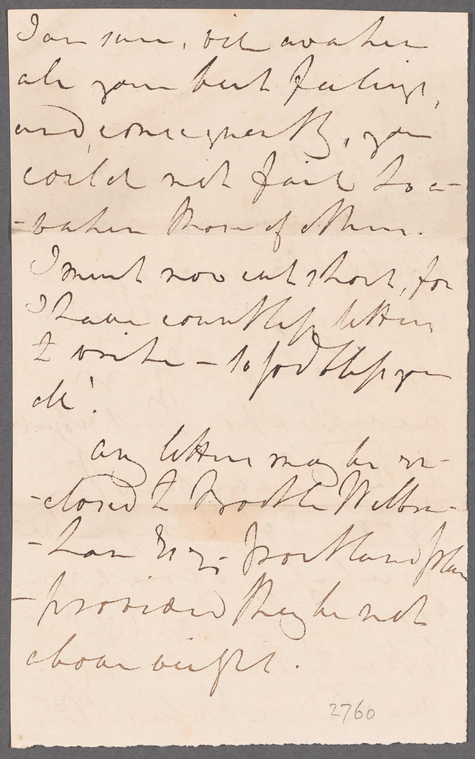 I am sure, will awaken
all your best feelings,
and, consequently, you
could not fail to a-
-waken those of others.
I must now cut short, for
I have countless letters
to write – so God bless you
all!
any letters may be en-
-closed to Bootle Wilbra-
-ham Esq; Portland place
-provided they be not
above weight.
2760